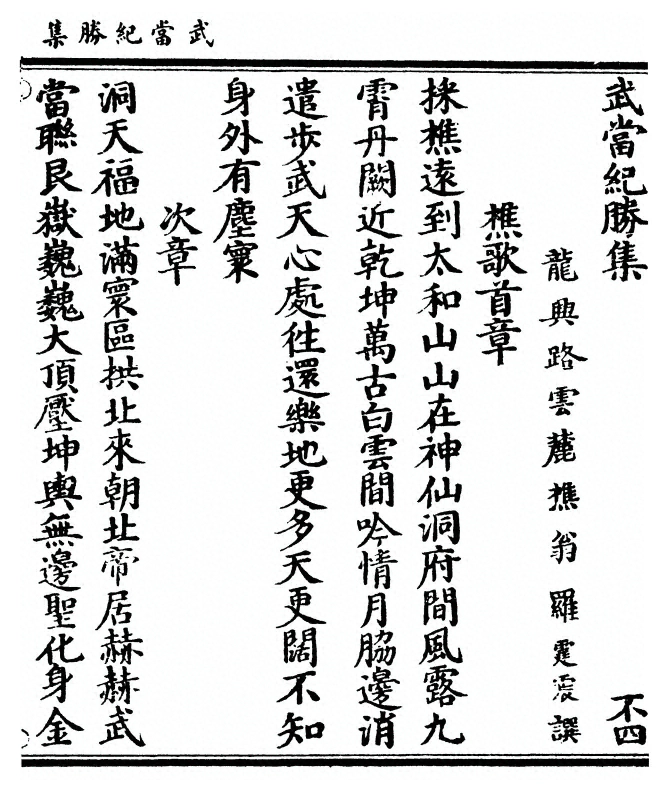 武當紀勝集
武當紀勝集　不四
龍興路雲麓樵翁羅霆震譔
樵歌首章
採樵遠到太和山山在神仙洞府間風露九
霄丹闕近乾坤萬古白雲間吟情月脇邊消
遣步武天心處徃還樂地更多天更闊不知
身外有塵寰
次章
洞天福地滿寰區拱北來朝北帝居赫赫武
當聯艮嶽巍巍大頂壓坤輿無邊聖化身金